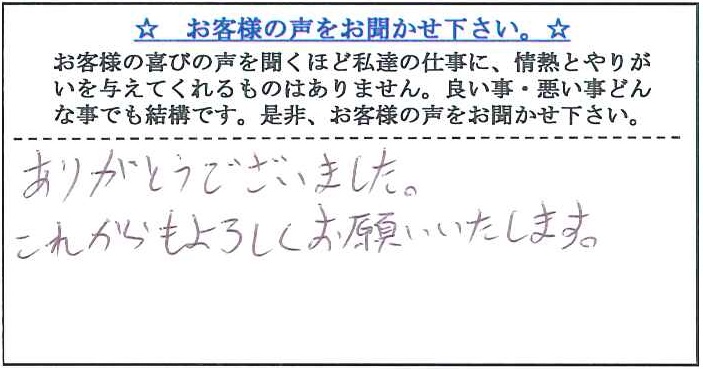 ☆ お客様の声をお聞かせ下さい。☆
お客様の喜びの声を聞くほど私達の仕事に、情熱とやりが
いを与えてくれるものはありません。良い事・悪い事どん
な事でも結構です。是非、お客様の声をお聞かせ下さい。
ありがとうございました。
これからもよろしくお願いいたします。